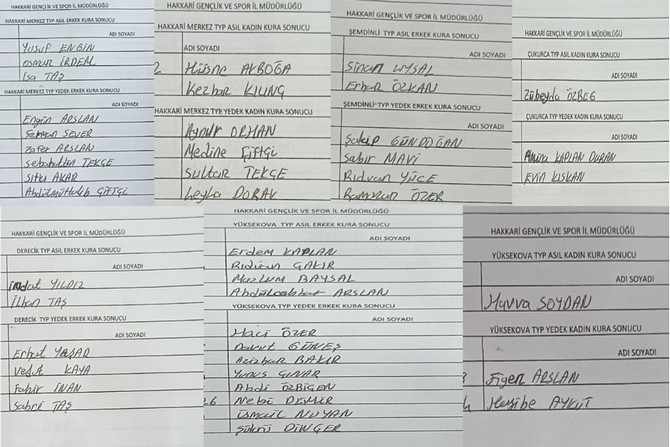 HAKKARİ GENÇLİK VE SPOR İL MÜDÜRLÜĞÜ
HAKKARİ MERKEZ TYP ASIL ERKEK KURA SONUCU
ADI SOYADI
Yusuf ENGİN
osman İRDEM
İsa TAŞ
HAKKARİ MERKEZ TYP YEDEK ERKEK KURA SONUCU
ADI SOYADI
Engin ARSLAN
Ferman SEVER
Zafer ARSLAN
Sebahattin TEKÇE
Sıtkı AKAR
Abdulmuttalib ÇİFTÇİ
HAKKARİ GENÇLİK VE SPOR İL MÜDÜRLÜĞÜ
HAKKARİ MERKEZ TYP ASIL KADIN KURA SONUCU
ADI SOYADI
2 Hüsne AKBOĞA
Kezban KILINÇ
HAKKARİ MERKEZ TYP YEDEK KADIN KURA SONUCU
Aynur ORHAN
Medine ÇİFTÇİ
Sultan TEKÇE
Leyla
HAKKARİ GENÇLİK VE SPOR İL MÜDÜRLÜĞÜ
ŞEMDİNLİ TYP ASIL ERKEK KURA SONUCU
ADI SOYADI
Sinan UYSAL
ÖZKAN
ŞEMDİNLİ TYP YEDEK ERKEK KURA SONUCU
ADI SOYADI
Şakip GÜNDOĞAN
Sabır MAVİ
Rıdvan YÜCE
Ramazan ÖZER
HAKKARİ GENÇLİK VE SPOR İL MÜDÜRLÜĞÜ
ÇUKURCA TYP ASIL KADIN KURA SONUCU
ADI SOYADI
Zübeyda ÖZBEG
ÇUKURCA TYP YEDEK KADIN KURA SONUCU
ADI SOYADI
KAPLAN DURAN
Evin KISKAN
HAKKARİ GENÇLİK VE SPOR İL MÜDÜRLÜĞÜ
DERECİK TYP ASIL ERKEK KURA SONUCU
ADI SOYADI
YILDIZ
İlhan TAŞ
DERECİK TYP YEDEK ERKEK KURA SONUCU
ADI SOYADI
YAŞAR
Vedat KAYA
Fahir İNAN
Sabri TAŞ
HAKKARİ GENÇLİK VE SPOR İL MÜDÜRLÜĞÜ
YÜKSEKOVA TYP ASIL ERKEK KURA SONUCU
ADI SOYADI
Erdem KAPLAN
Rıdvan ÇAKIR
Mazlum BAYSAL
ARSLAN
YÜKSEKOVA TYP YEDEK ERKEK KURA SONUCU
ADI SOYADI
Hacı ÖZER
Davut GÜNEŞ
Azizhan BAKIR
Yunus ÇINAR
Abdi ÖZBİGEN
26 Nebi DEMİR
İsmail NUYAN
Şükrü DİNÇER
HAKKARİ GENÇLİK VE SPOR İL MÜDÜRLÜĞÜ
YÜKSEKOVA TYP ASIL KADIN KURA SONUCU
ADI SOYADI
Havva SOYDAN
YÜKSEKOVA TYP YEDEK KADIN KURA SONUCU
ADI SOYADI
Figen ARSLAN
AYKUT